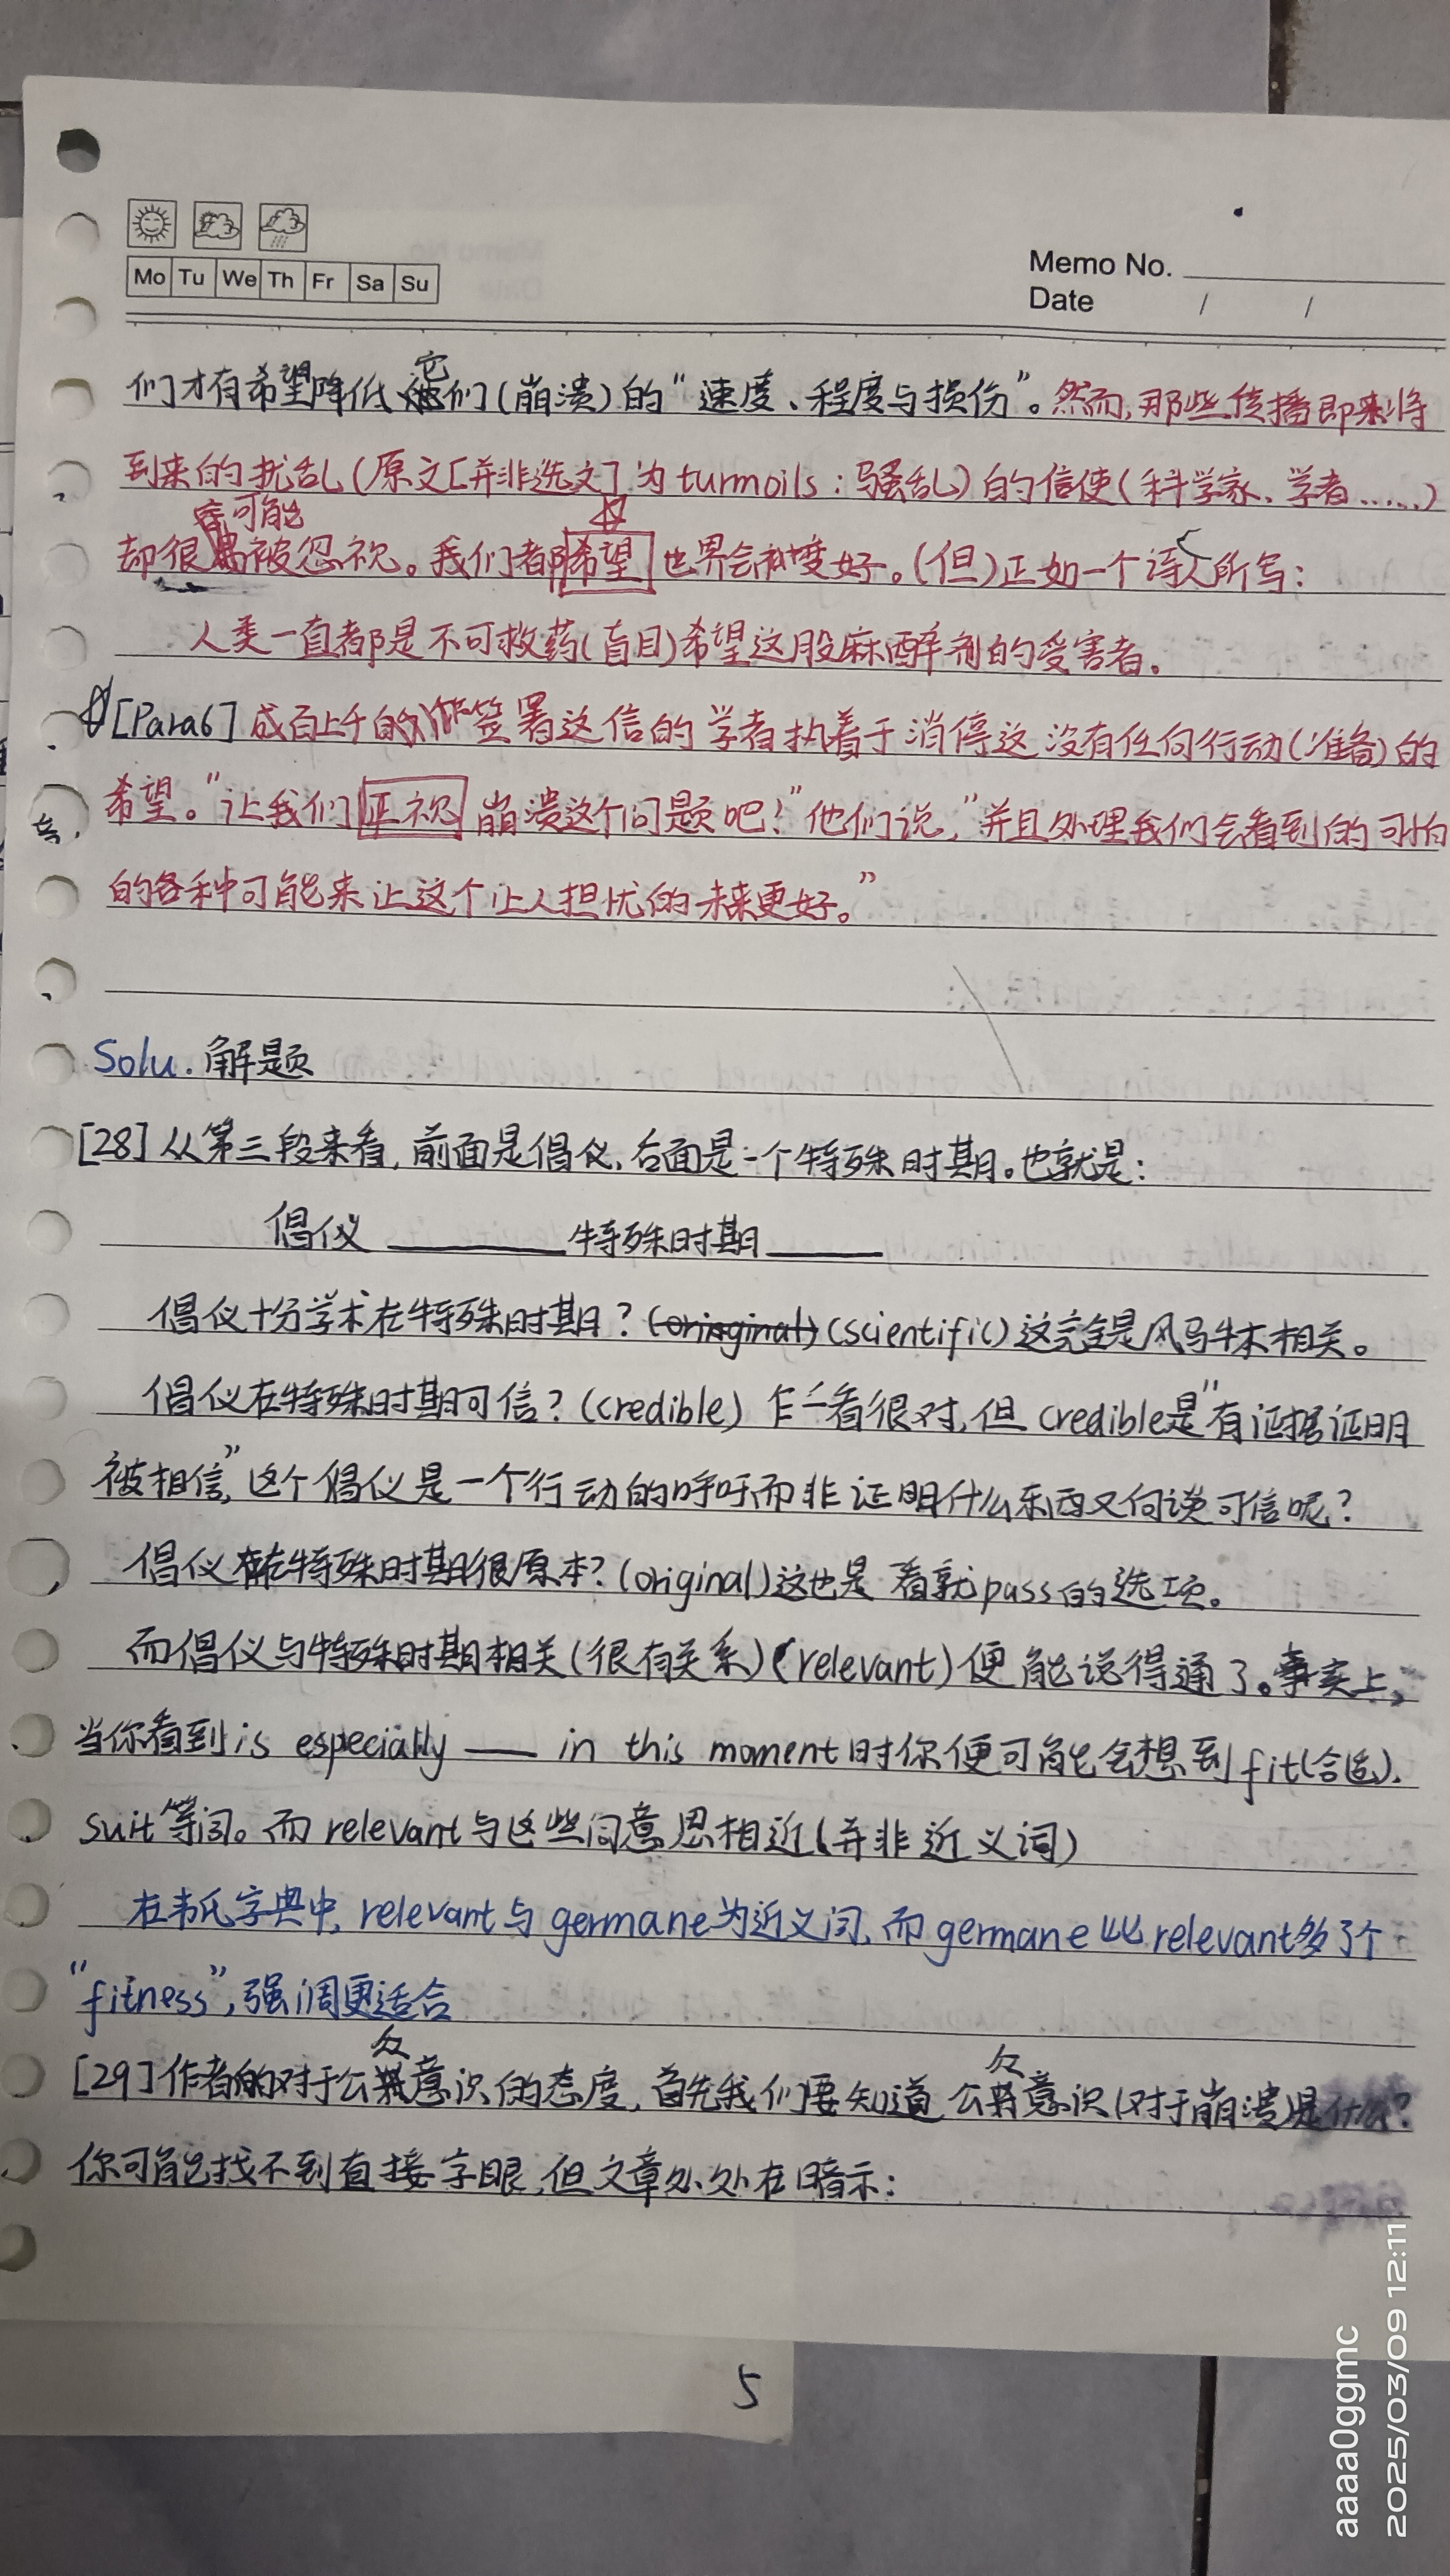 Mo Tu We Th Fr Sa Su
Memo No.
Date / /
们才有希望降低它们(崩溃)的“速度、程度与损伤”。然而,那些传播即将
到来的扰乱(原文[并非选文]为turmoils:骚乱)的信使(科学家、学者……)
却很有可能被忽视。我们都希望世界会变好。(但)正如一个诗人所写:
人类一直都是不可救药(盲目)希望这股麻醉剂的受害者。
[Para6]成百上千的签署这信的学者执着于消停这没有任何行动(准备)的
希望。“让我们正视崩溃这个问题吧!”他们说,“并且处理我们会看到的可怕
的各种可能来让这个让人担忧的未来更好。”
Solu.解题
[28]从第三段来看,前面是倡仪,后面是一个特殊时期。也就是:
倡仪______特殊时期______
倡仪十分学术在特殊时期?(oringinal)(scientific)这完全是风马牛不相关。
倡仪在特殊时期可信?(credible)乍一看很对,但credible是“有证据证明
被相信”,这个倡仪是一个行动的呼吁而非证明什么东西又何谈可信呢?
倡仪在特殊时期很原本?(original)这也是看就pass的选项。
而倡仪与特殊时期相关(很有关系)(relevant)便能说得通了。事实上,
当你看到is especially —— in this moment时你便可能会想到fit(合适).
suit等词。而relevant与这些词意思相近(并非近义词)
在韦氏字典中,relevant与germane为近义词,而germane比relevant多了个
“fitness”,强调更适合
[29]作者的对于公众意识的态度,首先我们要知道公众意识(对于崩溃)是什么?
你可能找不到直接字眼,但文章处处在暗示:
5
aaaa0ggmc
2025/03/09 12:11